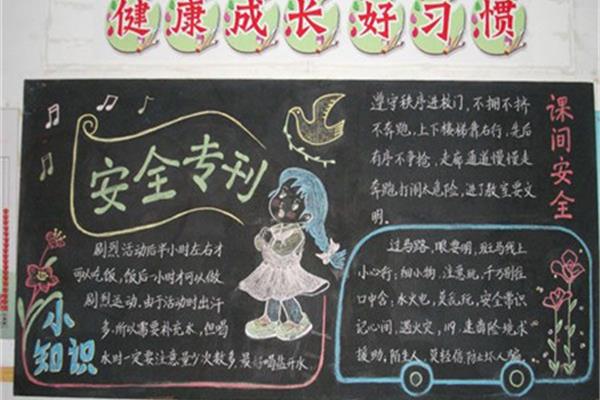 健康成长好习惯
安全专刊
剧烈活动后半小时左右才
可以吃饭，饭后一小时才可以做
剧烈运动。由于活动时出汗
多，所以需要补充水，但喝
水时一定要注意量少次数多，最好喝盐开水
小
知识
遵守秩序进校门，不拥不挤
不奔跑，上下楼梯靠右行，先后
有序不争抢，走廊通道慢慢走
奔跑打闹太危险，进了教室要文
明。
课间安全
过马路，眼要明，斑马线上
小心行；细小物，注意玩，千万别往
口中含；水火电，莫乱玩，安全常识
记心间；遇火灾，119，走离险境求
援助，陌生人，莫轻信，防止坏人骗